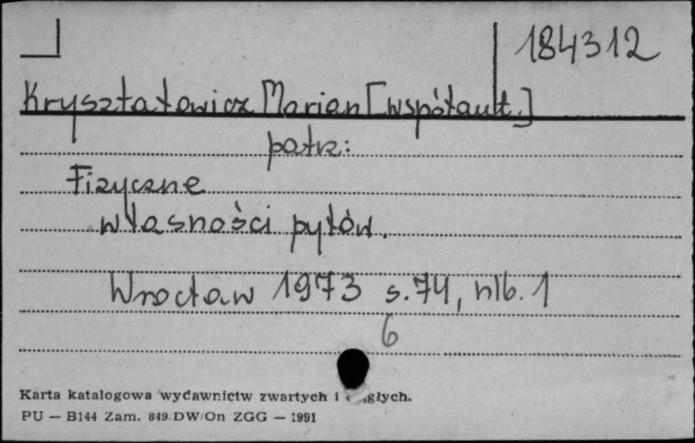 184312
Kryształowicz Marian [współaut.]
patrz:
Fizyczne
własności pyłów.
Wrocław 1973 s. 74, nlb. 1
6
Karta katalogowa wydawnictw zwartych i głych.
PU — B144 Zam. 849 DW/On ZGG — 1991